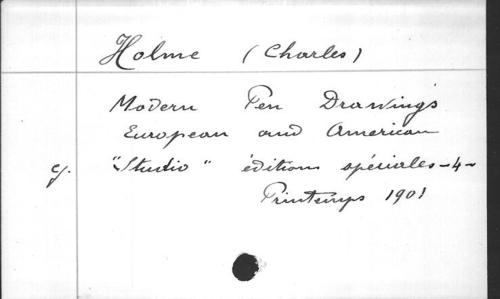 Holme (Charles)
Modern Pen Drawings
European and American
cf. "Studio" éditions spéciales -4-
Printemps 1901